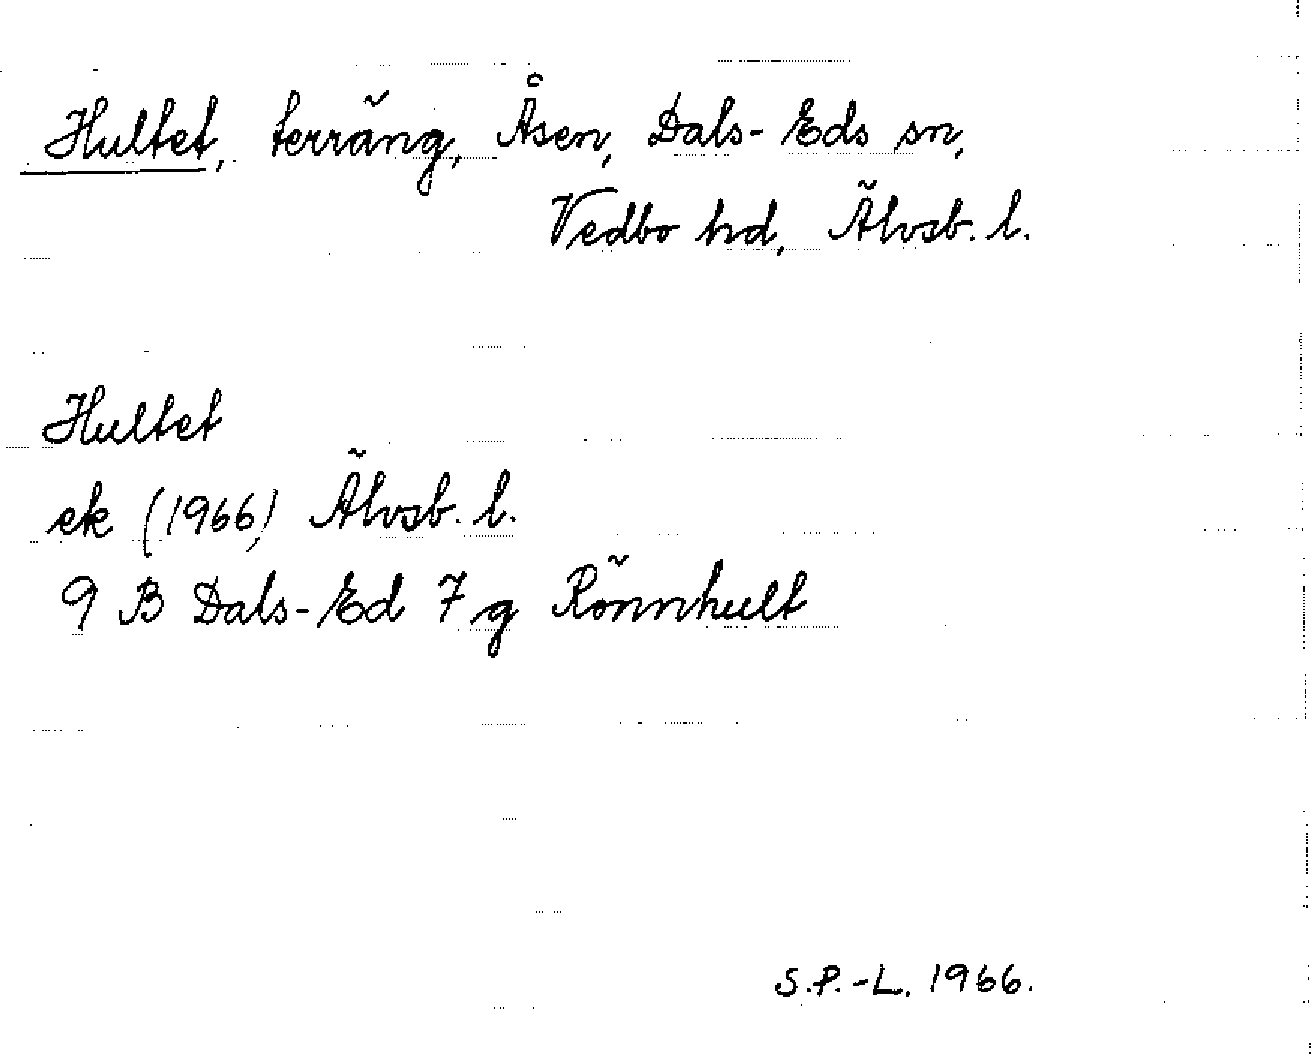 Hultet, terräng, Åsen, Dals-Eds sn,
Vedbo hd, Älvsb. l.
Hultet
ek (1966) Älvsb. l.
9 B Dals-Ed 7 g Rönnhult
S.P.-L. 1966.